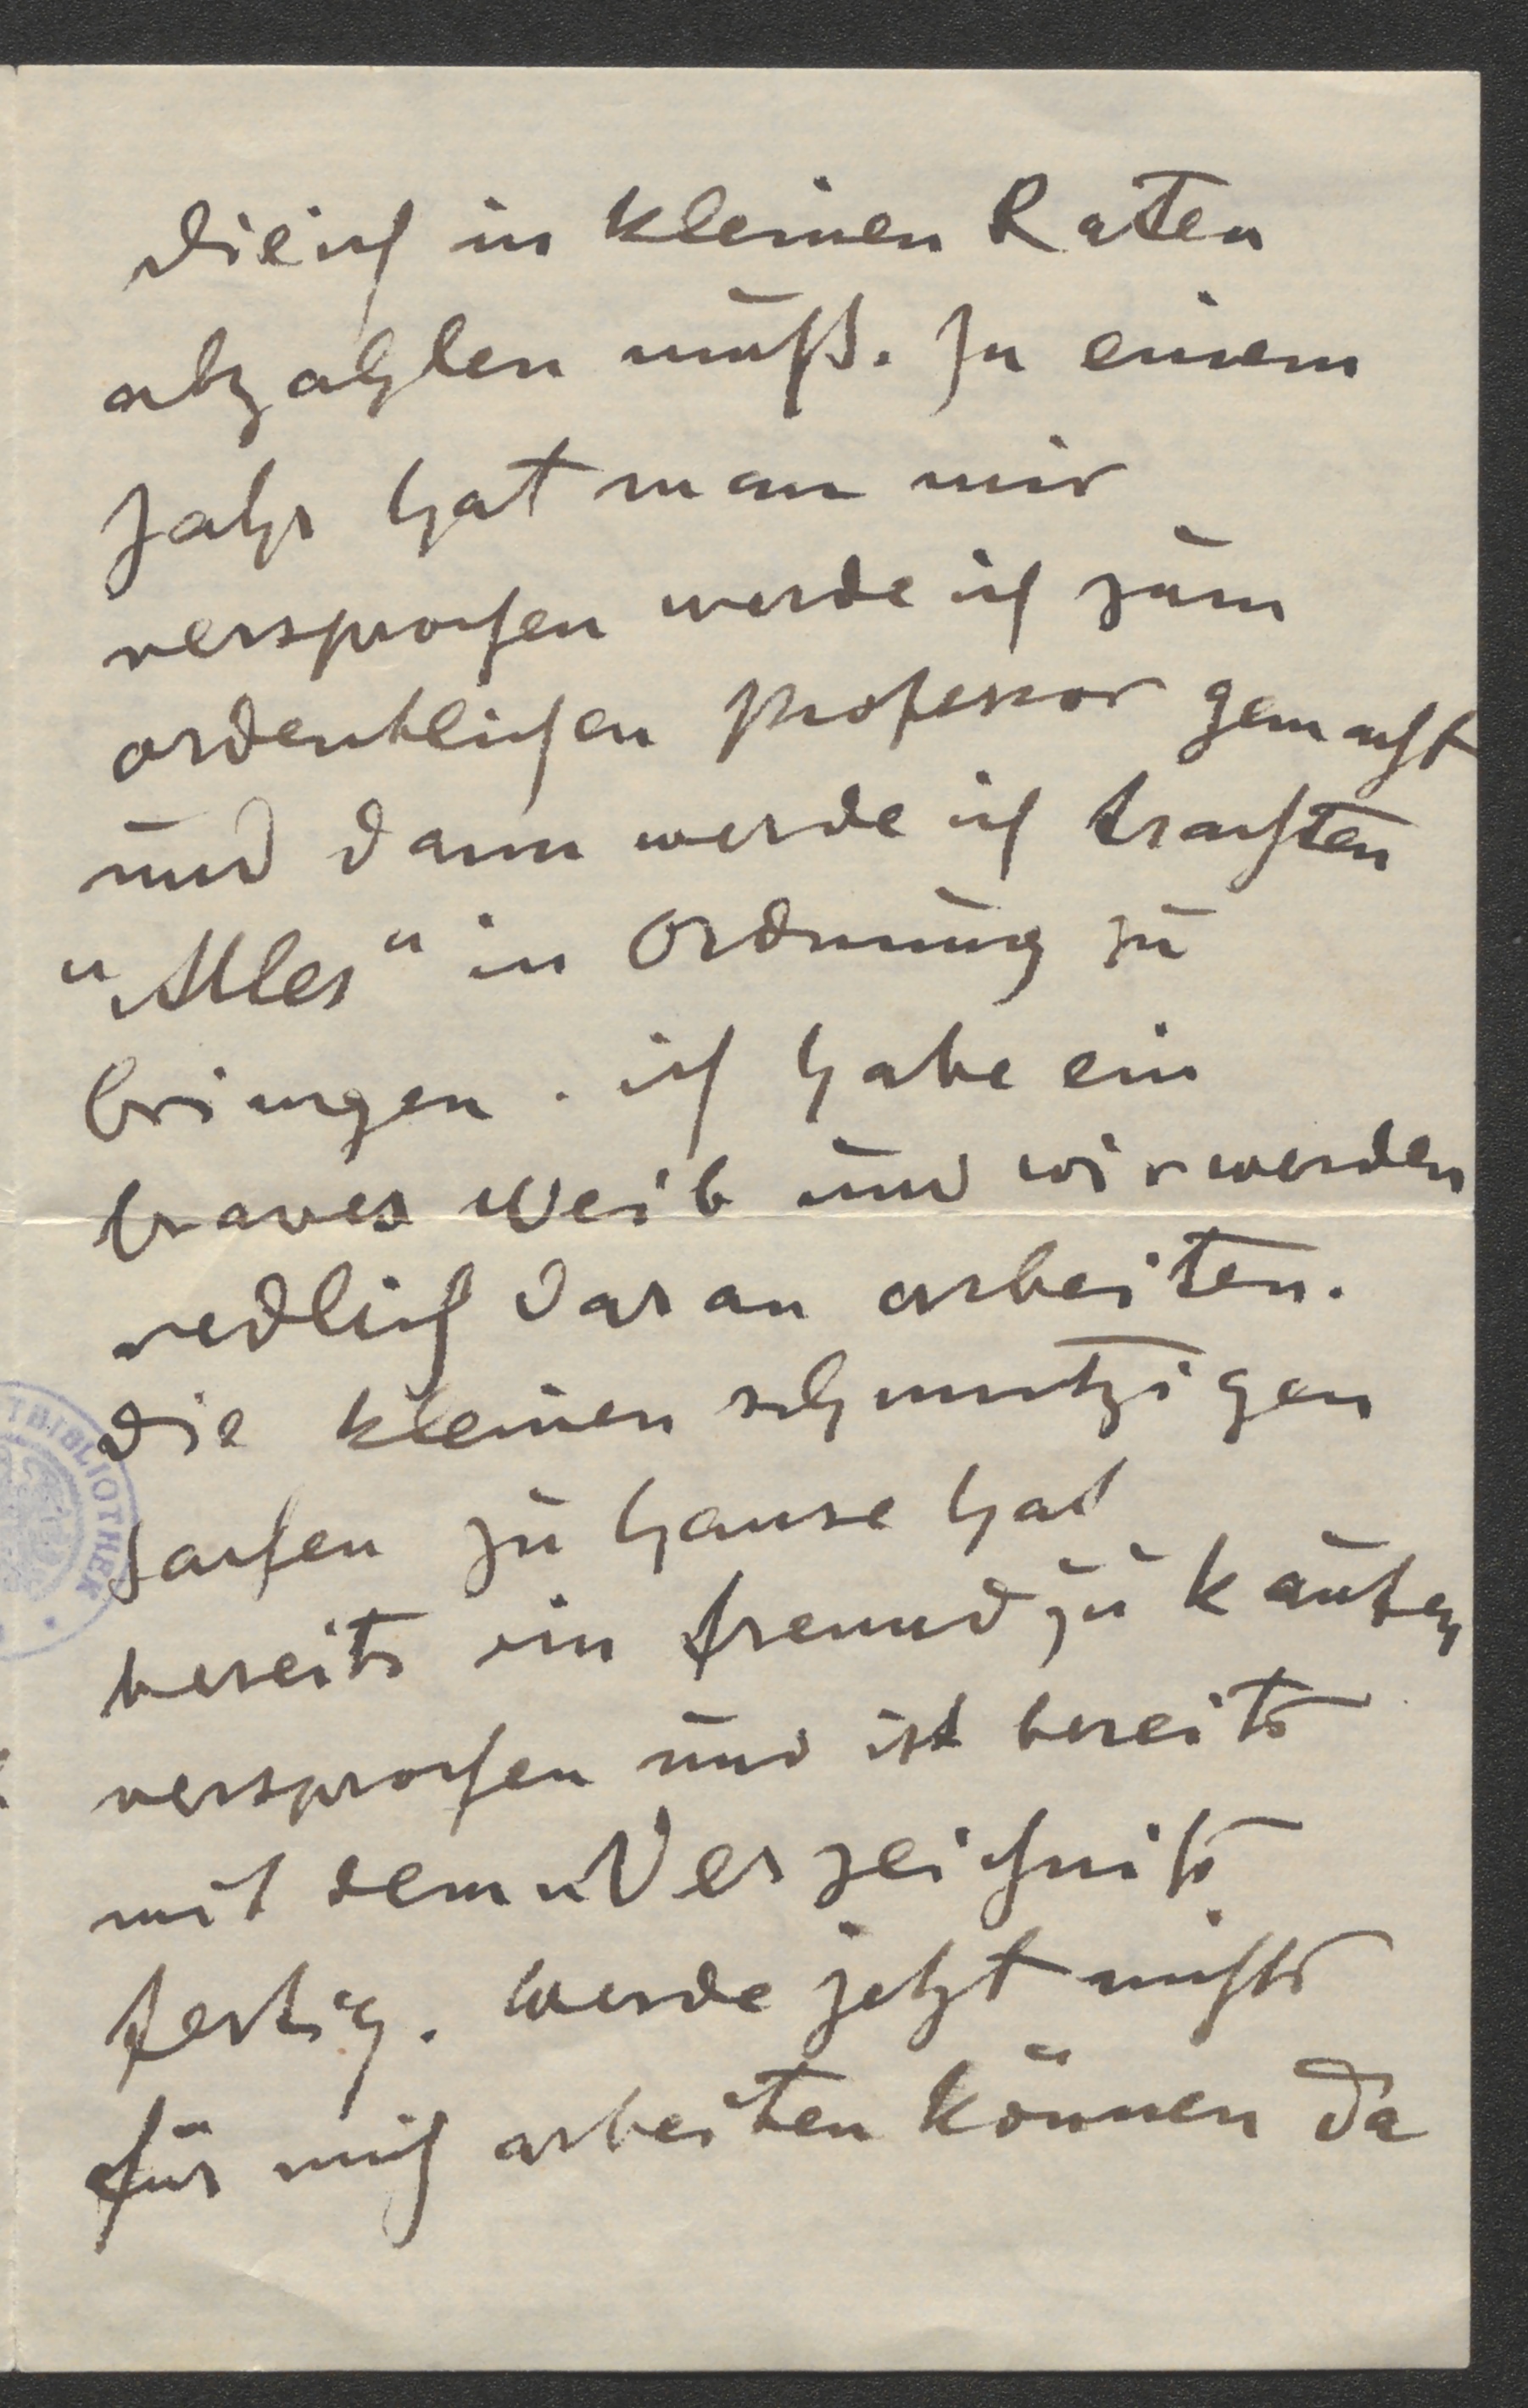 die ich in kleinen Raten
abzahlen muß. In einem
Jahr hat man mir
versprochen werde ich zum
ordentlichen Professor gemacht
und dann werde ich trachten
"Alles" in Ordnung zu
bringen. ich habe ein
braves Weib und wir werden
redlich daran arbeiten.
die kleinen schmutzigen
sachen zu hause hat
bereits ein freund zu kaufen
versprochen und ist bereits
mit dem Verzeichniß
fertig. werde jetzt nichts
für mich arbeiten können da
TBIBLIOTHEK